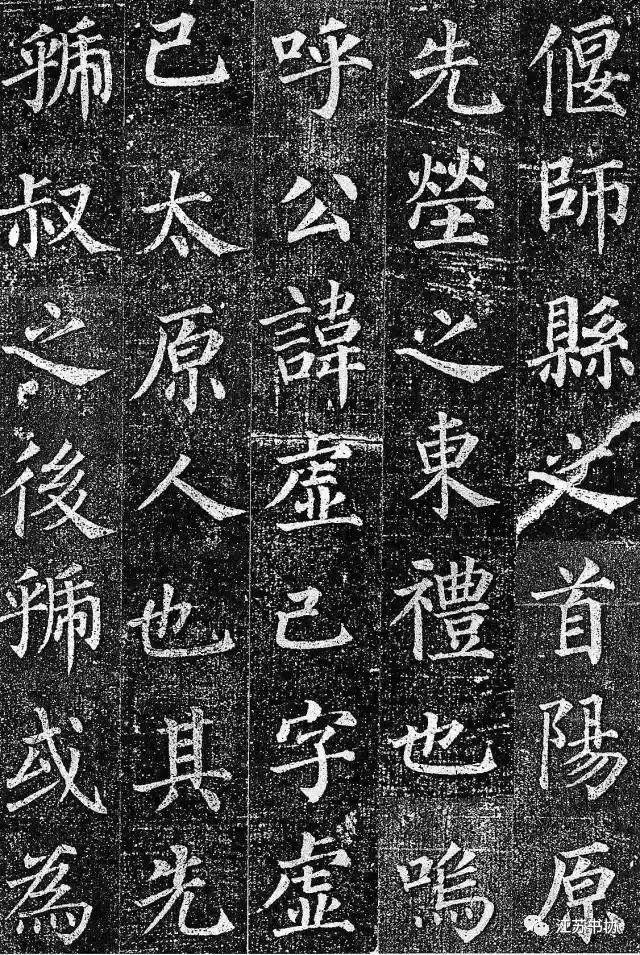 偃師縣之首陽原
先塋之東禮也嗚
呼公諱虛己字虛
己太原人也其先
虢叔之後虢或為
江苏书